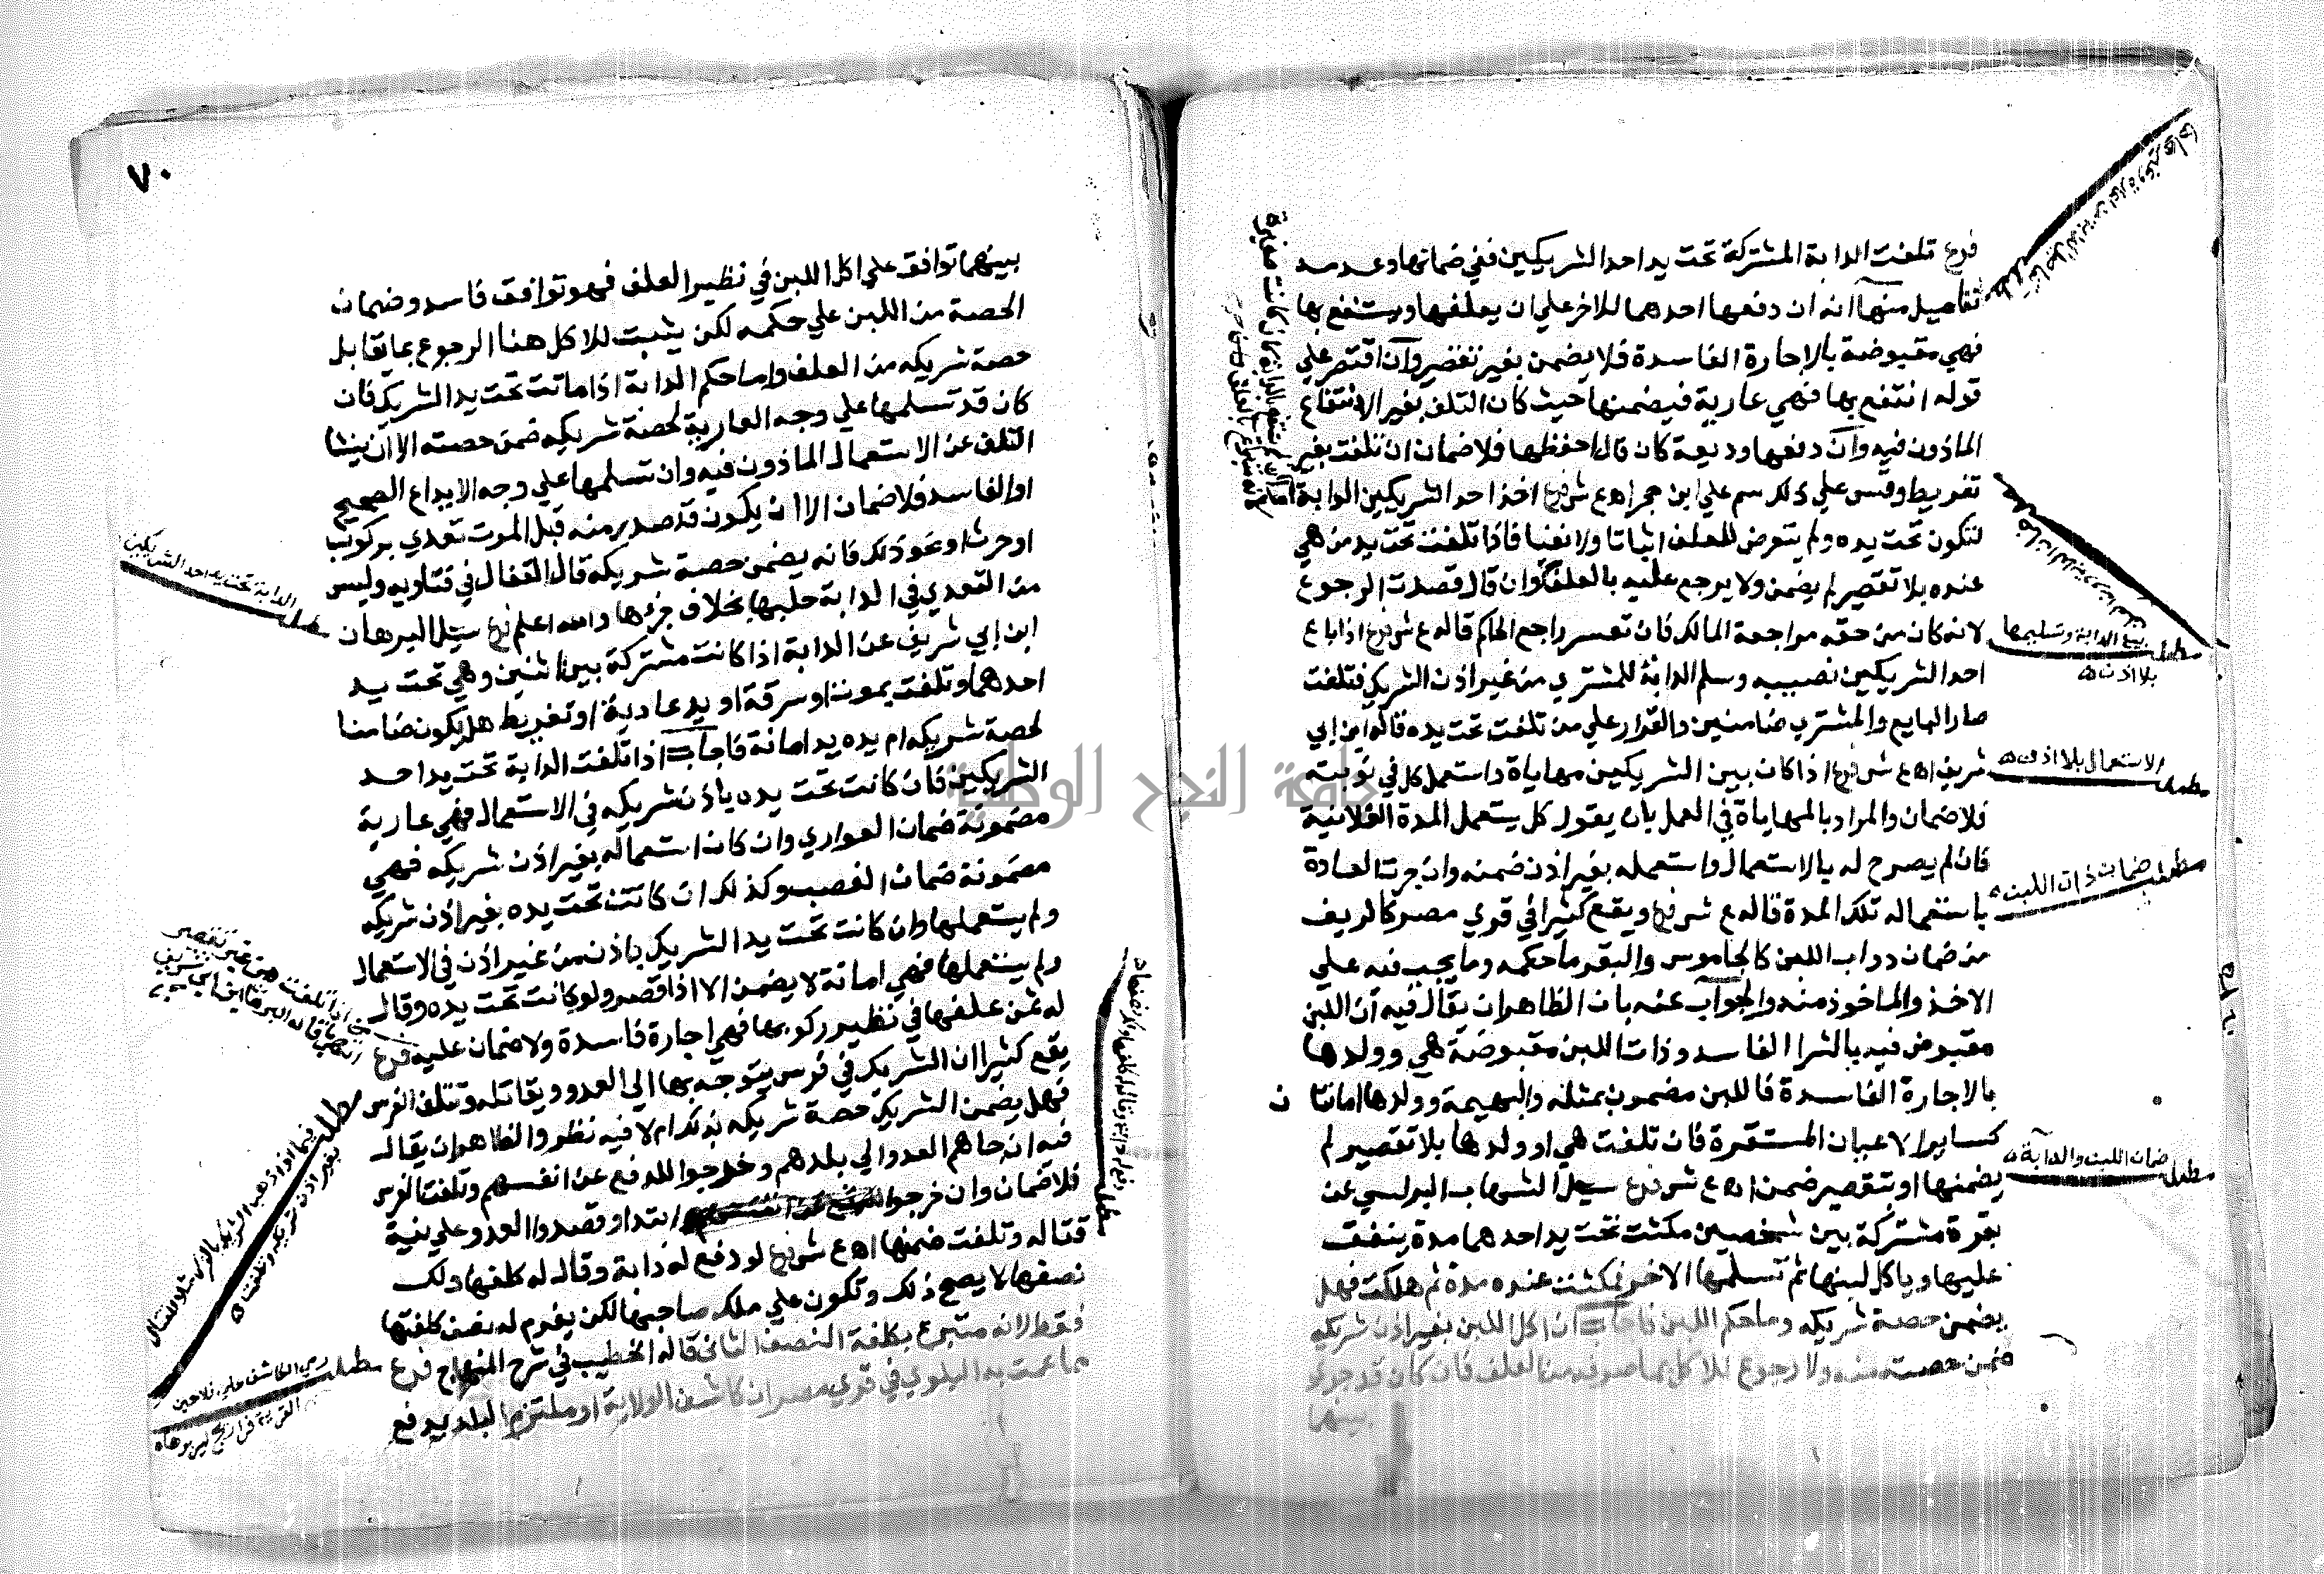 فرع تلفت الدابة المشتركة تحت يد احد الشريكين ففي ضمانها وعدمه
تفاصيل منها انه ان دفعها احدهما للاخر علي ان يعلفها وينتفع بها
فهي مقبوضة بالاجارة الفاسدة فلا يضمن بغير تقصير وان اقتصر علي
قوله انتفع بها فهي عارية فيضمنها حيث كان التلف بغير الانتفاع
الماذون فيه وان دفعها وديعة كان قال احفظها فلا ضمان ان تلفت بغير
تفريط وقس علي ذلك سم علي ابن حجر اه ع ش فرع اخذ احد الشريكين الدابة
لتكون تحت يده ولم يتعرض للعلف اثباتا ولا نفيا فاذا تلفت تحت يد من هي
عنده بلا تقصير لم يضمن ولا يرجع عليه بالعلف وان قال قصدت الرجوع
لانه كان من حقه مراجعة المالك فان تعسر راجع الحاكم قاله ع ش فرع اذا باع
احد الشريكين نصيبه وسلم الدابة للمشتري من غير اذن الشريك فتلفت
صار البايع والمشتري ضامنين والقرار علي من تلفت تحت يده قاله ابن ابي
شريف اه ع ش فرع اذا كان بين الشريكين مهاياة واستعمل كل في نوبته
فلا ضمان والمراد بالمهاياة في العمل بان يقول كل يستعمل المدة الفلانية
فان لم يصرح له بالاستعمال واستعمله بغير اذن ضمنه وان جرت العادة
باستعماله تلك المدة قاله ع ش فرع ويقع كثيرا في قري مصر كالريف
من ضمان دواب اللبن كالجاموس والبقر ما حكمه وما يجب فيه علي
الاخذ والماخوذ منه والجواب عنه بان الظاهر ان يقال فيه ان اللبن
مقبوض فيه بالشرا الفاسد وذات اللبن مقبوضة هي وولدها
بالاجارة الفاسدة فاللبن مضمون بمثله والبهيمة وولدها امانتان
كساير الاعيان المستقرة فان تلفت هي او ولدها بلا تقصير لم
يضمنها او بتقصير ضمن اه ع ش فرع سيل الشهاب البرلسي عن
بقرة مشتركة بين شخصين مكثت تحت يد احدهما مدة ينفق
عليها وياكل لبنها ثم تسلمها الاخر فمكثت عنده مدة ثم هلكت فهل
يضمن حصة شريكه وما حكم اللبن فاجاب ان اكل اللبن بغير اذن شريكه
ضمن حصته منه ولا رجوع للاكل بما صرفه من العلف فان كان قد جري
بينهما
مطلب بيع الدابة وتسليمها
بلا اذن
مطلب الاستعمال بلا اذن
مطلب ضمان ذات اللبن
مطلب ضمان اللبن والدابة
٧٠
بينهما توافق علي اكل اللبن في نظير العلف فهو توافق فاسد وضمان
الحصة من اللبن علي حكمه لكن يثبت للاكل هنا الرجوع بما يقابل
حصة شريكه من العلف واما حكم الدابة اذا ماتت تحت يد الشريك فان
كان قد تسلمها علي وجه العارية لحصة شريكه ضمن حصته الا ان ينشا
التلف عن الاستعمال الماذون فيه وان تسلمها علي وجه الايداع الصحيح
او الفاسد فلا ضمان الا ان يكون قد صدر منه قبل الموت تعدي بركوب
او حرث او نحو ذلك فانه يضمن حصة شريكه قال القفال في فتاويه وليس
من التعدي في الدابة حلبها بخلاف جزها والله اعلم فرع سيل البرهان
ابن ابي شريف عن الدابة اذا كانت مشتركة بين اثنين وهي تحت يد
احدهما وتلفت بموت او سرقة او يد عادية او تفريط هل يكون ضامنا
لحصة شريكه ام يده يد امانة فاجاب اذا تلفت الدابة تحت يد احد
الشريكين فان كانت تحت يده باذن شريكه في الاستعمال فهي عارية
مضمونة ضمان العواري وان كان استعماله بغير اذن شريكه فهي
مضمونة ضمان الغصب وكذلك ان كانت تحت يده بغير اذن شريكه
ولم يستعملها وان كانت تحت يد الشريك باذن من غير اذن في الاستعمال
ولم يستعملها فهي امانة لا يضمن الا اذا قصر ولو كانت تحت يده وقال
له ثمن علفها في نظير ركوبها فهي اجارة فاسدة ولا ضمان عليه فرع
يقع كثيرا ان الشريك في فرس يتوجه بها الي العدو ويقاتله وتتلف الفرس
فهل يضمن الشريك حصة شريكه بذلك ام لا فيه نظر والظاهر ان يقال
فيه ان جاهم العدو الي بلدهم وخرجوا للدفع عن انفسهم وتلفت الفرس
فلا ضمان وان خرجوا ابتدا وقصدوا العدو علي نية
قتاله وتلفت ضمنها اه ع ش فرع لو دفع له دابة وقال له كلفها ولك
نصفها لا يصح ذلك وتكون علي ملك صاحبها لكن يغرم له نصف كلفتها
فقط لانه متبرع بكلفة النصف الثاني قاله الخطيب في شرح المنهاج فرع
مما عمت به البلوي في قري مصر ان كاشف الولاية او ملتزم البلد يدفع
مطلب الدابة تحت يد احد الشريكين
مطلب فيما اذا ذهب الشريك بالفرس مثلا للقتال
بغير اذن شريكه وتلفت
مطلب رمي الكاشف علي فلاحين